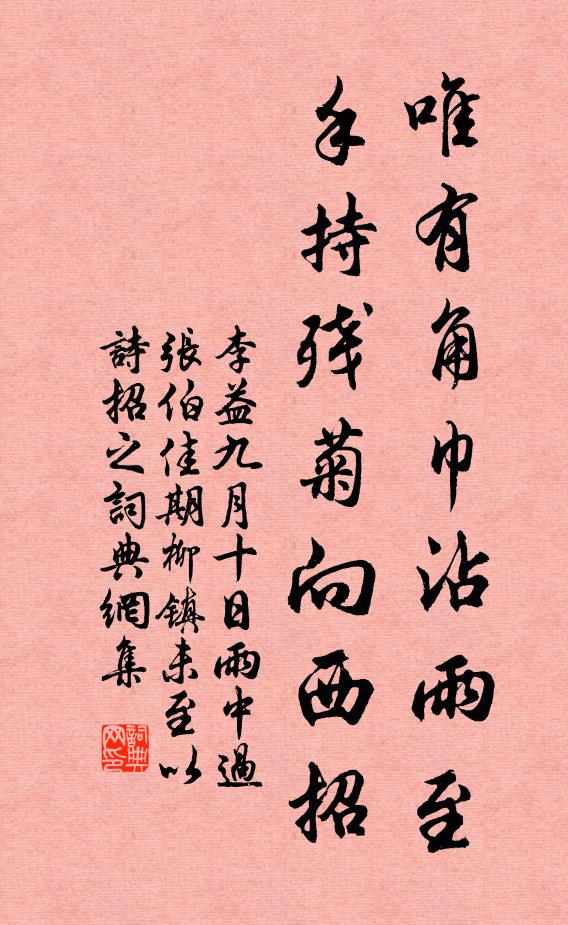 唯有角巾沾雨至
手持残菊向西招
李益九月十日雨中過
張伯佳期柳鎮未至以
詩招之詞典網集
詞典
网印